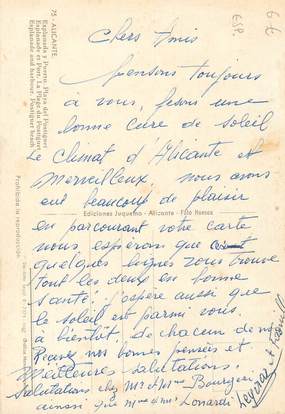 75 - ALICANTE
Esplanada y Puerto. Playa del Postiguet
Esplanade et Port. La Plage du Postiguet
Esplanade and harbour. Postiguet beach
Prohibida la reproducción
Ediciones Juquemo - Alicante - Foto Ramos
Chers Amis
pensons toujours
à vous, fesons une
bonne Cure de soleil
Le Climat d'Alicante et
Merveilleux nous avons
eut beaucoup de plaisir
en parcourant votre carte
nous esperons que
quelques lignes vous trouve
tout les deux en bonne
santé. j'espère aussi que
le soleil est parmi vous
a bientôt de chacun de nous
Recevez nos bonnes pensées et
Meilleures salutations.
Salutations chez Mr et Mme
ainsi que Mme et Mr Lonardi